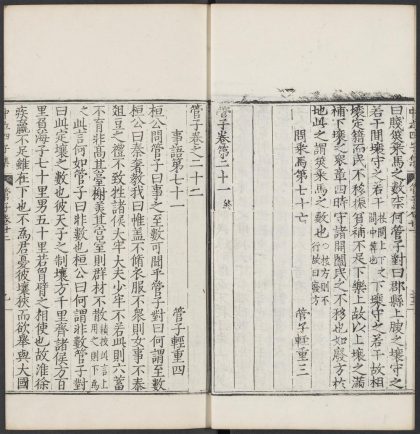 曰賤筴乘馬之數奈何管子對曰郡縣上臾之壤守之
若干間壤守之若干下壤守之若干故相
壤定籍而民不移振貧補不足下樂上故以上壤之滿
補下壤之衆章四時守諸開闔民之不移也如廢方於
地此之謂筴乘馬之數也
問乘馬第七十六
管子輕重三
管子卷第二十一
管子卷之二十二
事語第七十一
管子輕重四
桓公問管子曰事之至數可聞乎管子對曰何謂至數
桓公曰秦奢教我曰帷蓋不脩衣服不衆則女事不泰
俎豆之禮不致牲諸侯太牢大夫少牢不若此則六畜
不育非高其臺榭美其宮室則羣材不散
此言何如管子曰非數也桓公曰何謂非數管子對
曰此定壤之數也彼天子之制壤方千里齊諸侯方百
里負海子七十里男五十里若胷臂之相使也故准徐
疾羸不足雖在下也不爲君憂彼壤狹而欲舉與大國